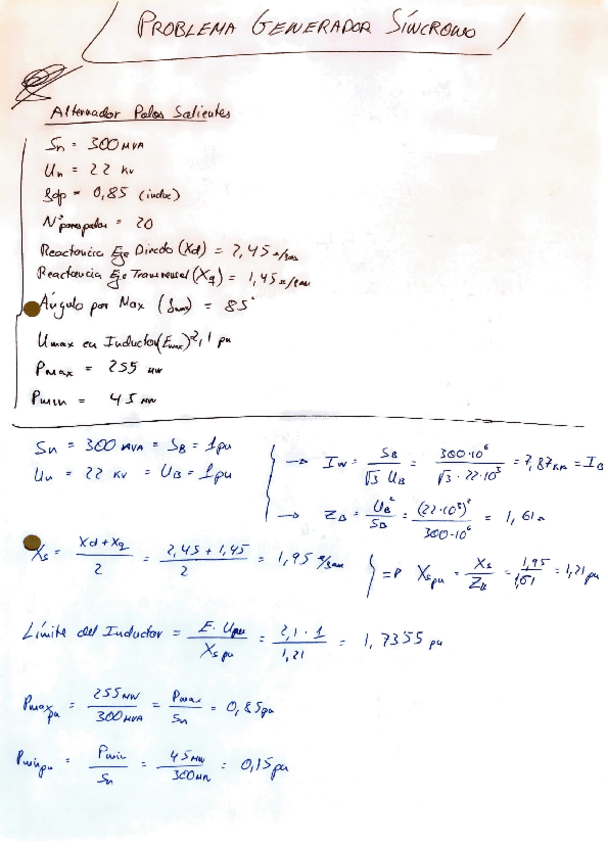 PROBLEMA GENERADOR SÍNCRONO
Alternador Polos Salientes
Sn = 300 MVA
Un = 22 kV
fdp = 0,85 (induc)
Nº pares polos = 20
Reactancia Eje Directo (Xd) = 2,45 Ω/fase
Reactancia Eje Transversal (Xq) = 1,45 Ω/fase
Ángulo par Max (δmax) = 85°
Umax en Inductor (Emax) 2,1 pu
Pmax = 255 MW
Pmin = 45 MW
Sn = 300 MVA = SB = 1 pu
Un = 22 kV = UB = 1 pu
→ IN = SB / √3 UB = 300·10⁶ / √3 · 22·10³ = 7,87 KA = IB
→ ZB = UB² / SB = (22·10³)² / 300·10⁶ = 1,61 Ω
Xs = Xd + Xq / 2 = 2,45 + 1,45 / 2 = 1,95 Ω/fase } => Xs pu = Xs / ZB = 1,95 / 1,61 = 1,21 pu
Límite del Inductor = E · Upu / Xs pu = 2,1 · 1 / 1,21 = 1,7355 pu
Pmax pu = 255 MW / 300 MVA = Pmax / Sn = 0,85 pu
Pmin pu = Pmin / Sn = 45 MW / 300 = 0,15 pu